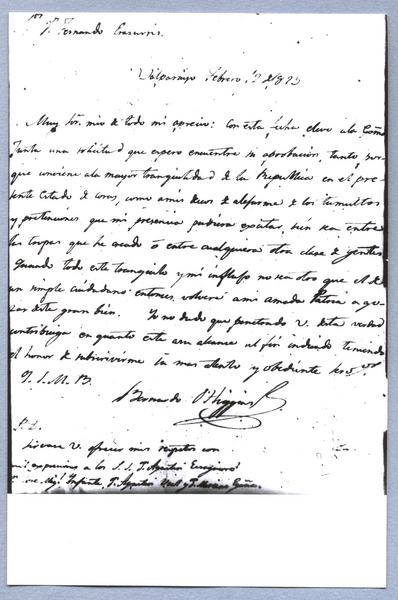 Sr. D. Fernando Errazuris.
Valparayso Febrero 12 de 1823
Muy Sor. mio de todo mi aprecio: Con esta fecha elevo a la Exma
Junta una solicitud que espero encuentre su aprobacion, tanto por-
que conviene a la mayor tranquilidad de la Republica en el pre-
sente estado de cosas, como a mis deseos de alejarme de los tumultos
y pretenciones que mi presencia pudiera excitar, bien sea entre
las tropas que he creado ó entre cualquiera otra clase de gentes
quando todo esté tranquilo y mi influxo no sea otro que el de
un simple ciudadano entonces volveré a mi amada Patria a go-
zar de este gran bien.  Yo no dudo que penetrado V. de esta verdad
contribuiga en quanto esté a su alcance al fin indicado teniendo
el honor de subscrivirme su mas atento y obediente
Q. S. M. B.
Bernardo O'Higgins
P. D.
Sirvase V. ofrecer mis respetos con
mis expreciones a los S.S. D. Agustin Eyzaguirre
José Migl. Infante, D. Agustin Vial y D.